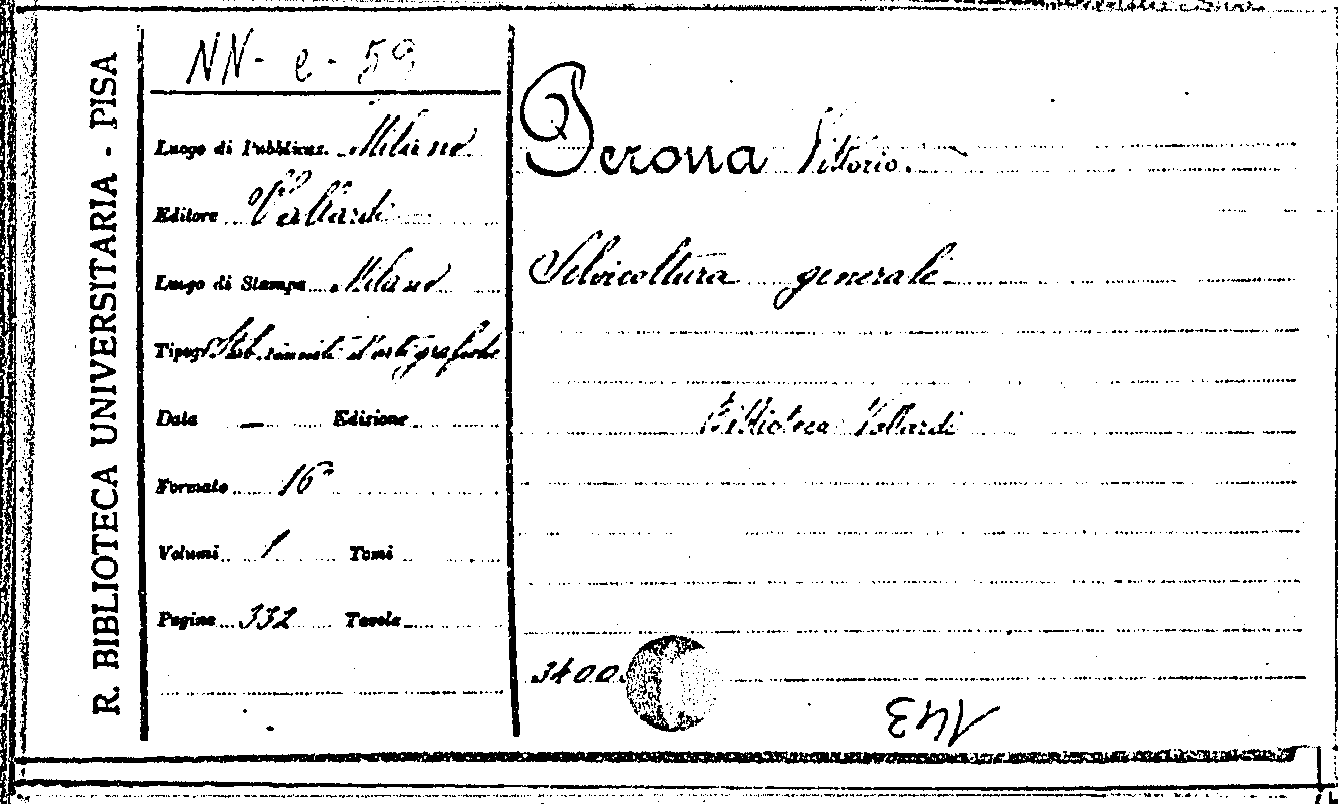 R. BIBLIOTECA UNIVERSITARIA - PISA
NN- e - 59
Luogo di Pubblicaz. Milano
Editore Vallardi
Luogo di Stampa Milano
Tipogr. Stab. riuniti d'arti grafiche
Data — Edizione
Formato 16°
Volumi 1 Tomi
Pagine 332 Tavole
Perona Vittorio.
Selvicoltura generale
Biblioteca Vallardi
3400
143